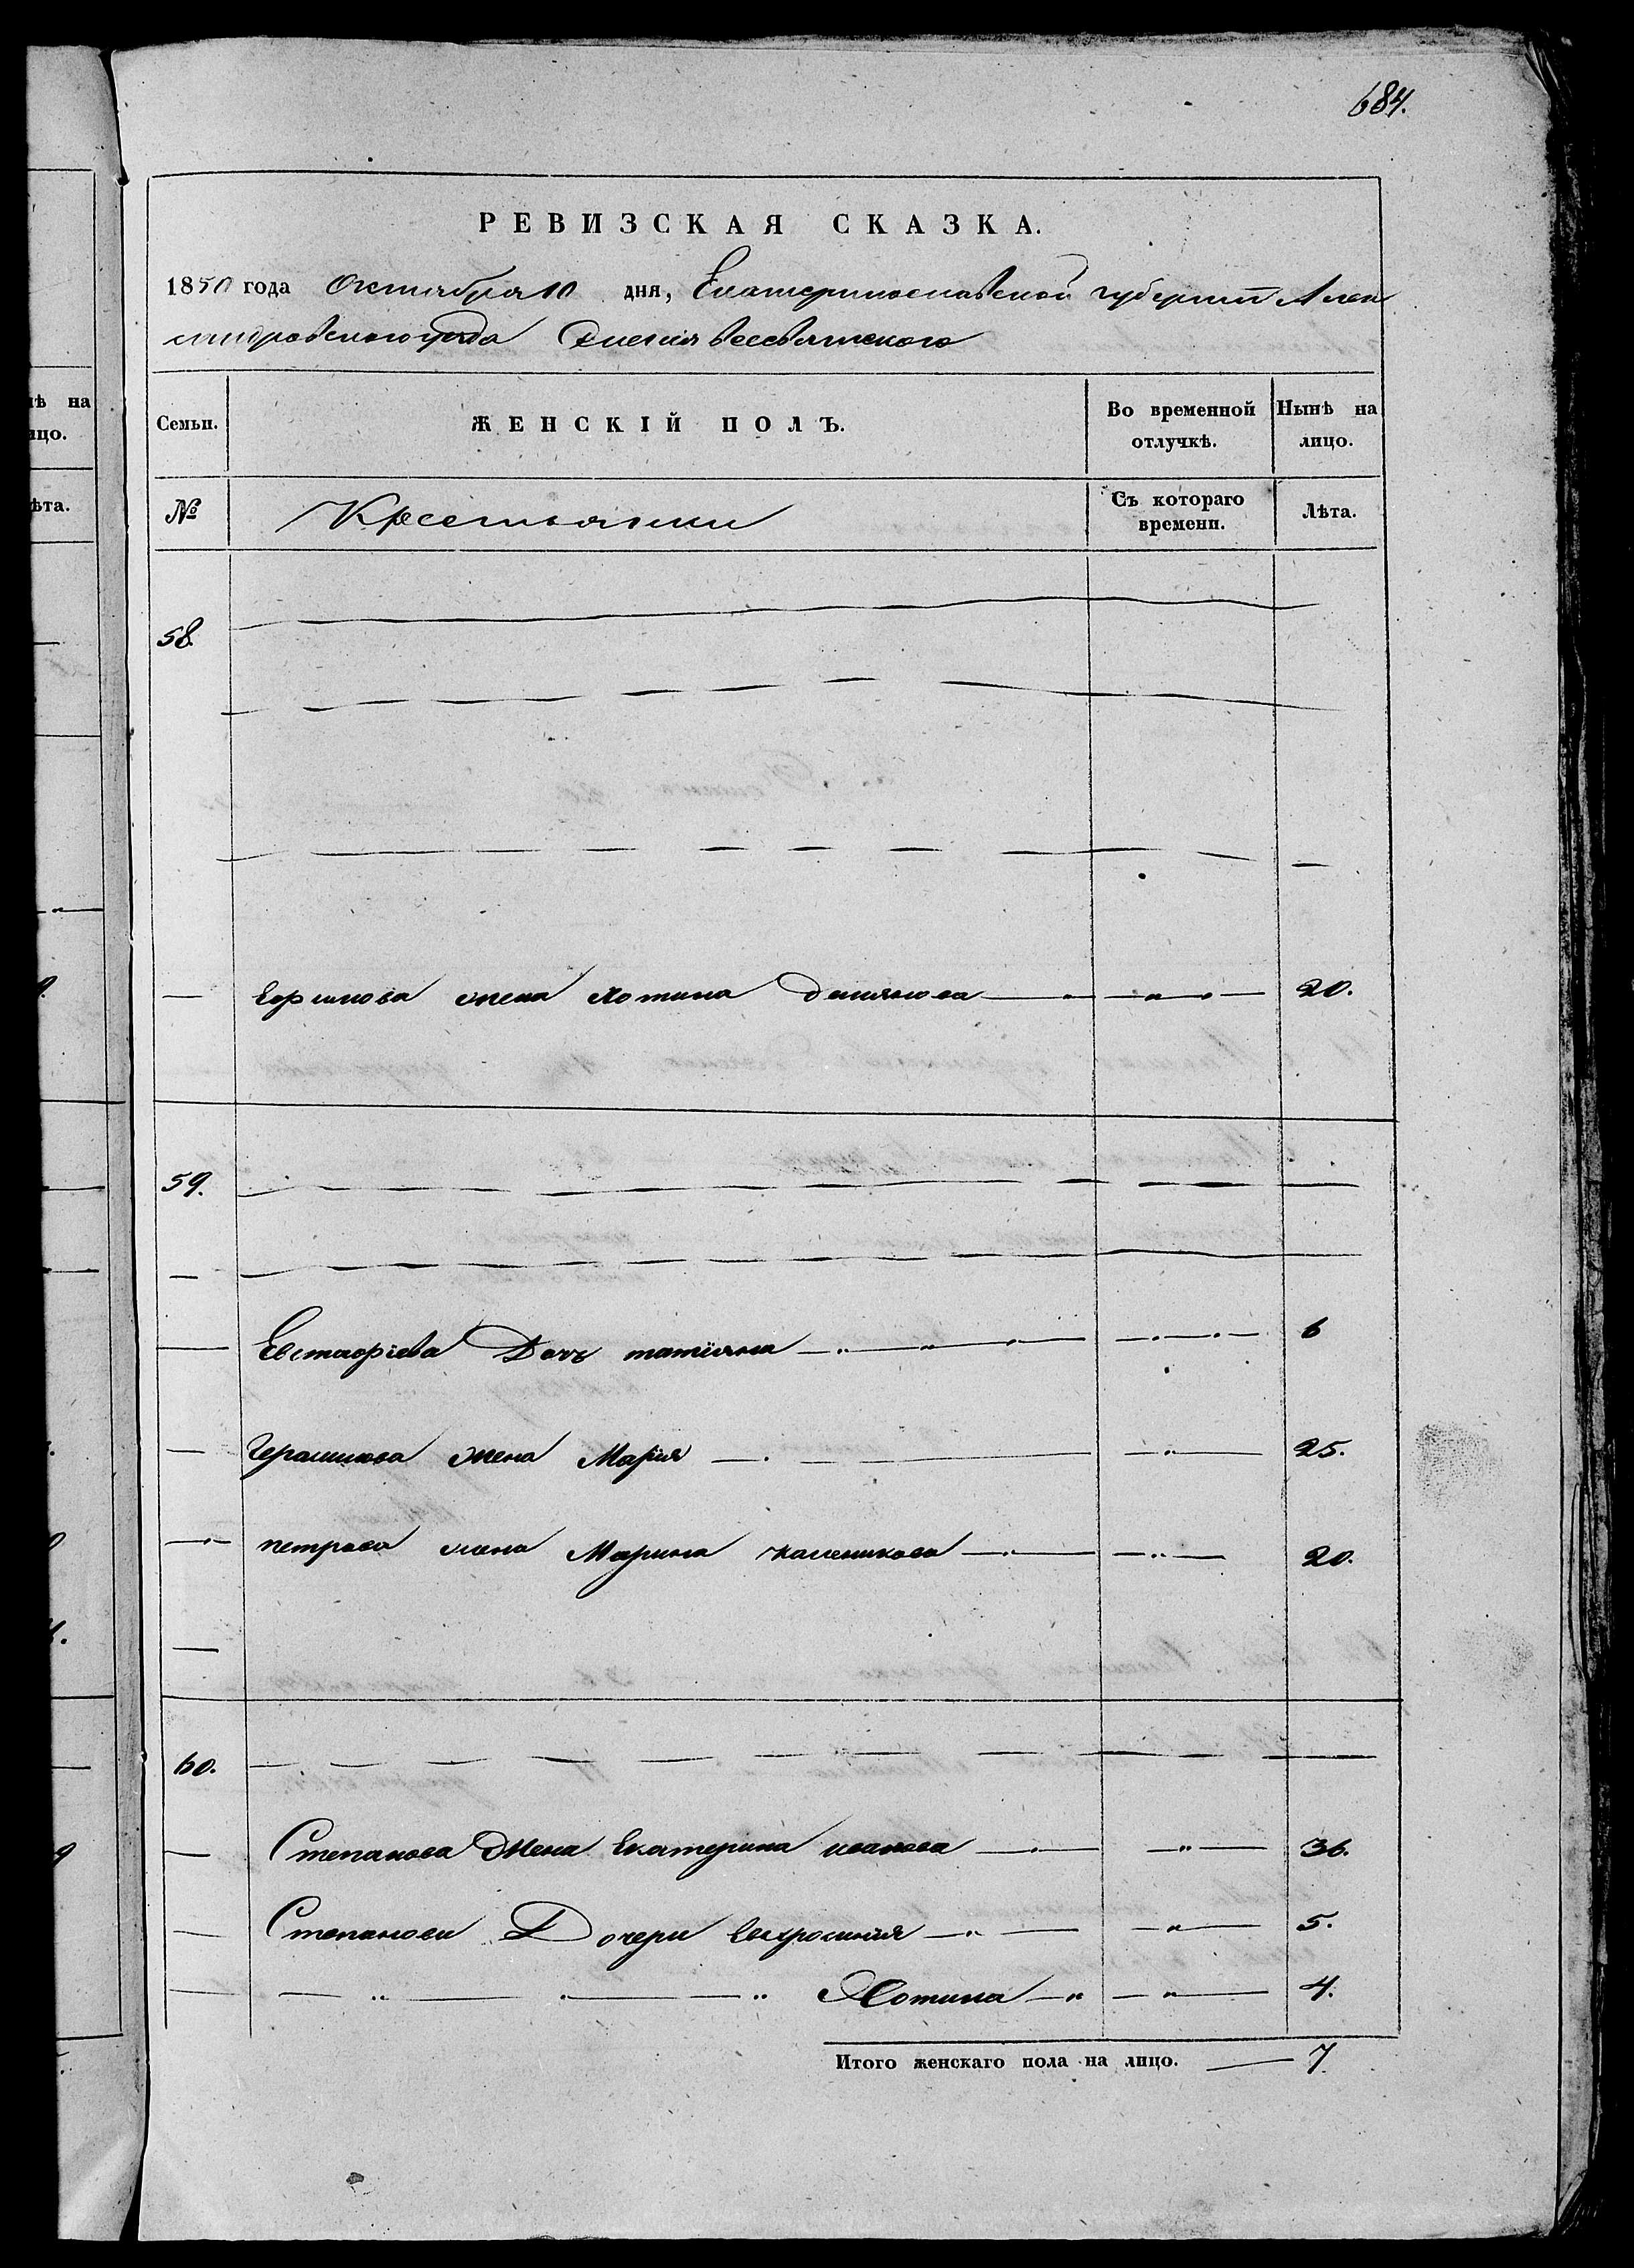 684.
РЕВИЗСКАЯ СКАЗКА.
1850 года Октября 10 дня, Екатеринославской губернии Алек
сандровского уезда всесвятского
Семьи. ЖЕНСКІЙ ПОЛЪ. Во временной отлучкѣ. Нынѣ на лицо.
№ Крестьянки Съ котораго времени. Лѣта.
58.
жена Хотина 20.
59.
Евстафіева Дочь татіяна 6
Герасимова жена Марія 25.
петрова жена Марина каленикова 20.
60.
Степанова Жена Екатерина иванова 36.
Степанови Дочери 5.
Хотина 4.
Итого женскаго пола на лицо. 7
нѣ на
лицо.
Лѣта.